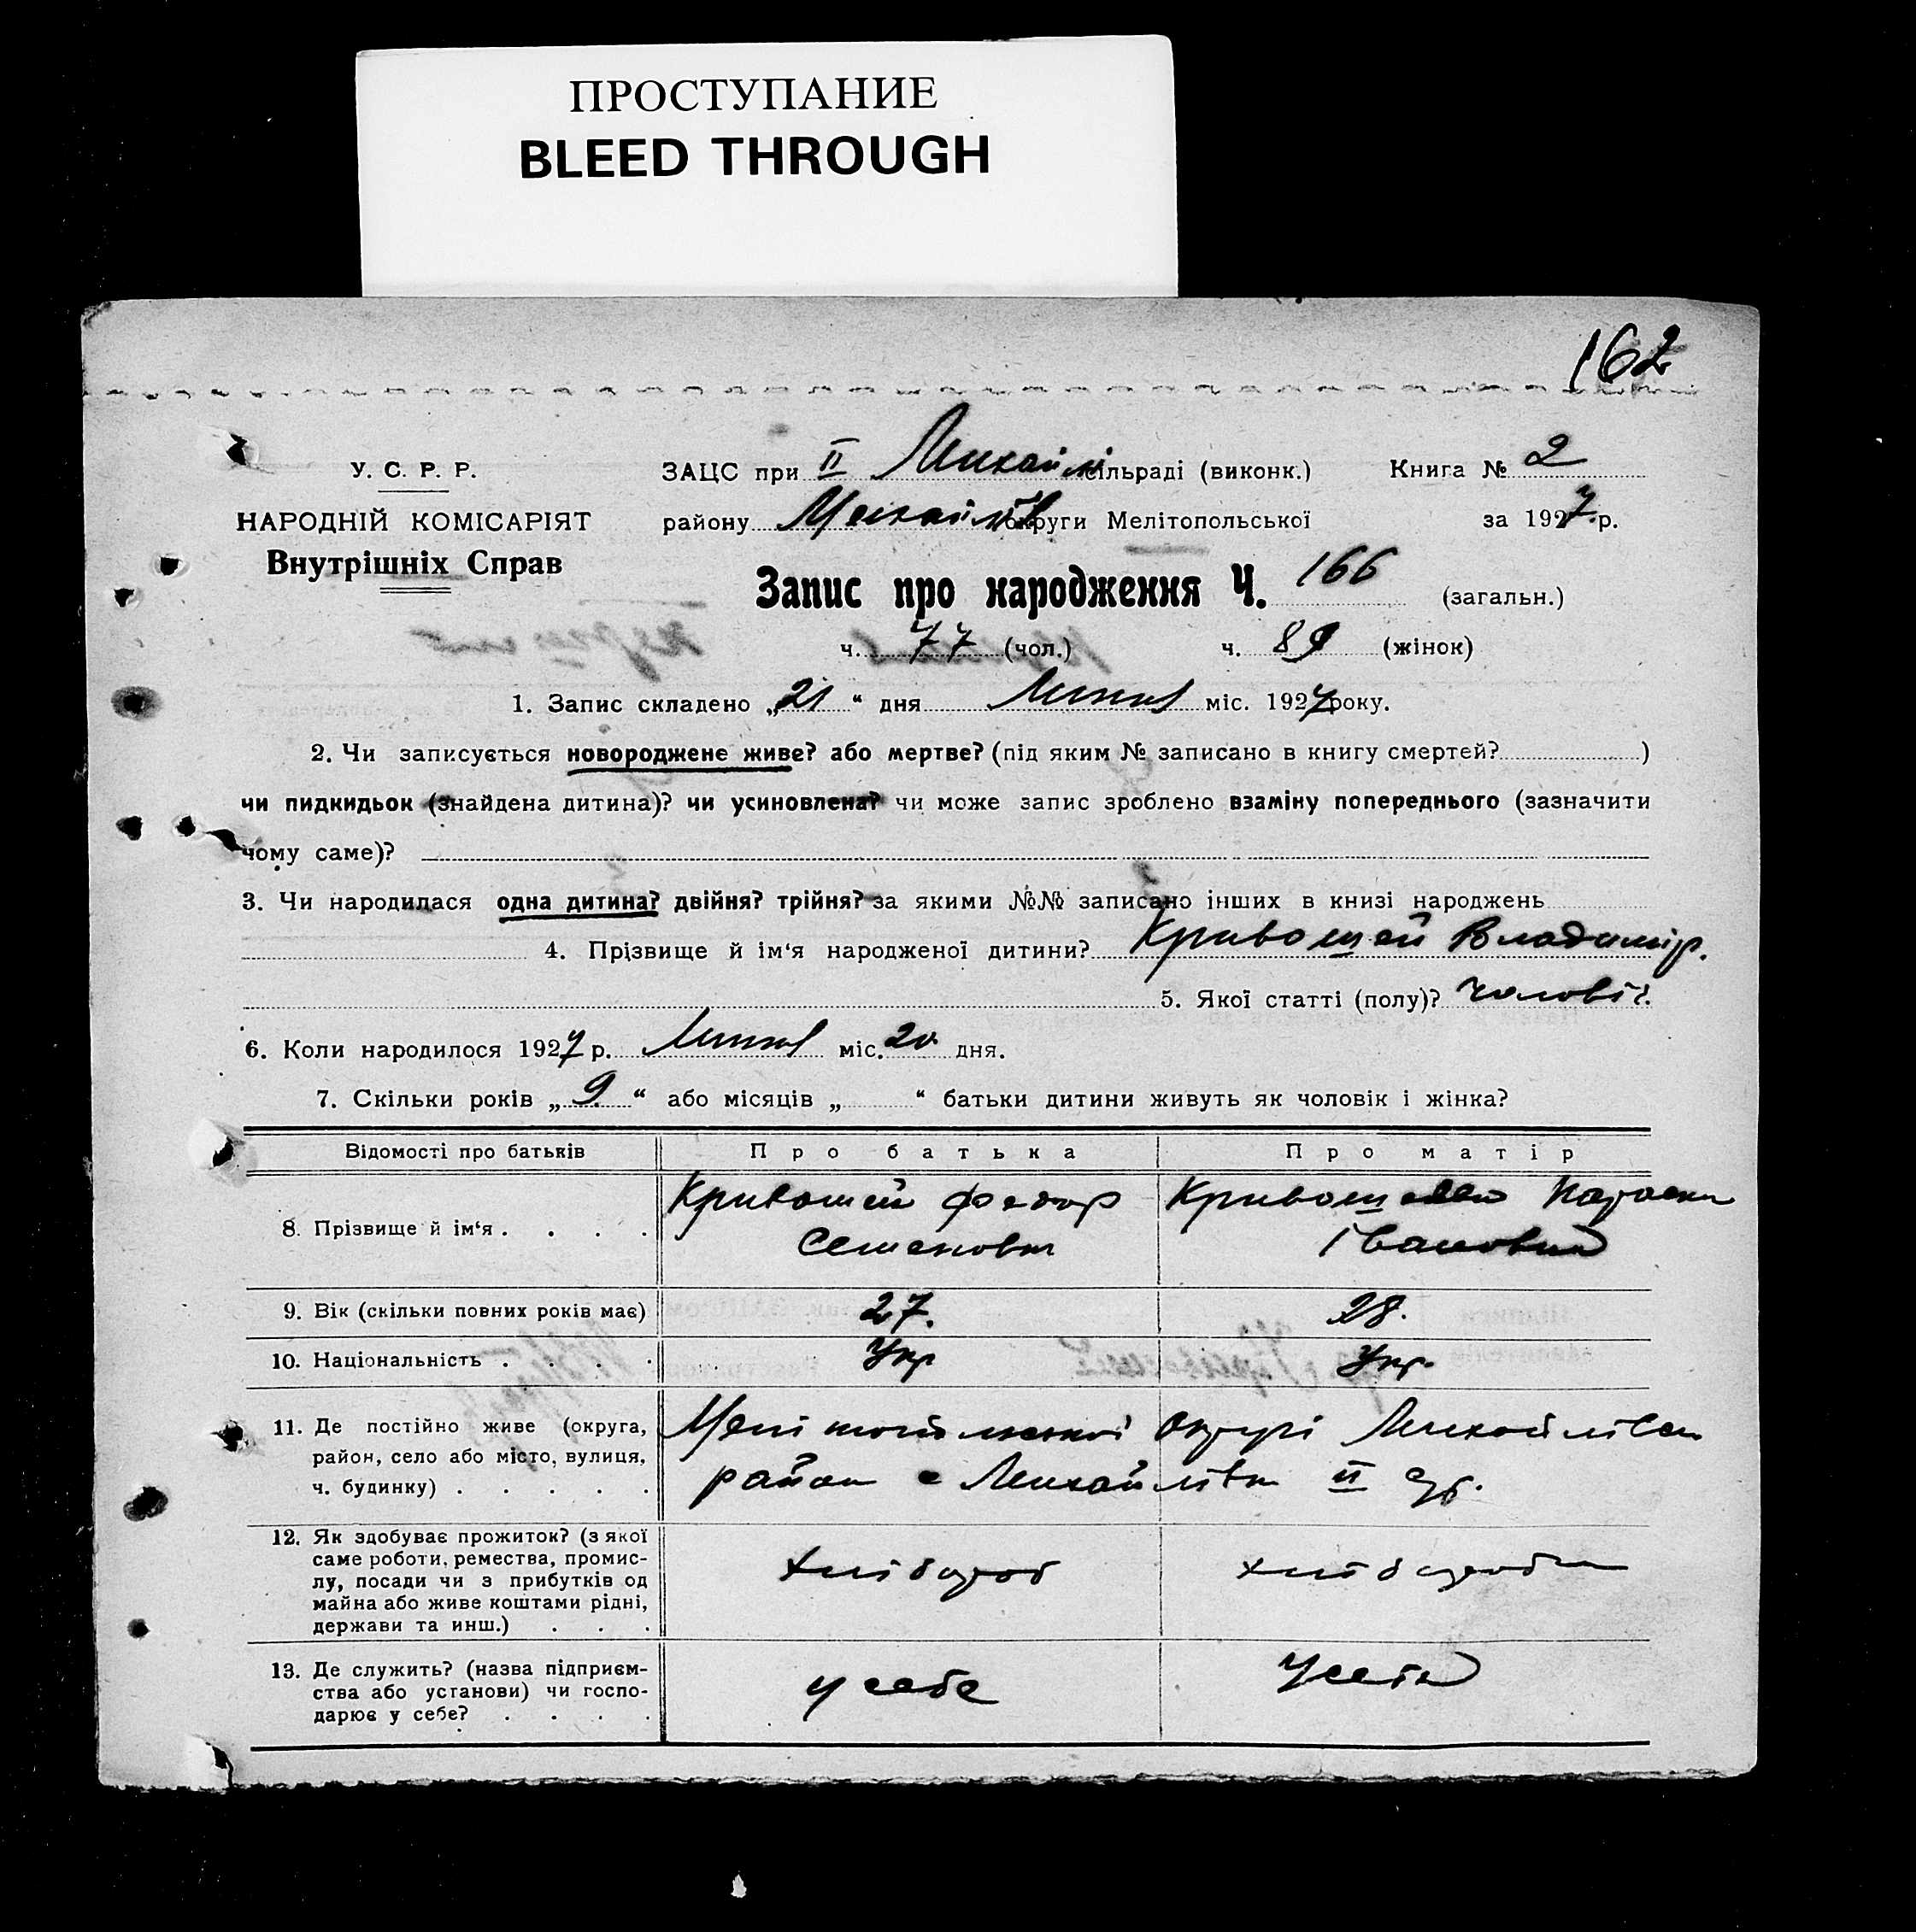 ПРОСТУПАНИЕ
BLEED THROUGH
162
У. С. Р. Р.
НАРОДНІЙ КОМІСАРІЯТ
Внутрішніх Справ
ЗАЦС при II Михайл сільраді (виконк.) Книга № 2
району Михайлів округи Мелітопольської за 1927 р.
Запис про народження Ч. 166 (загальн.)
ч. 77 (чол.) ч. 89 (жінок)
1. Запис складено „21“ дня Липня міс. 1927 року.
2. Чи записується новороджене живе? або мертве? (під яким № записано в книгу смертей? )
чи пидкидьок (знайдена дитина)? чи усиновлена? чи може запис зроблено взаміну попереднього (зазначити
чому саме)?
3. Чи народилася одна дитина? двійня? трійня? за якими №№ записано інших в книзі народжень
4. Прізвище й ім‘я народженої дитини? Кривошей Владимір.
5. Якої статті (полу)? чоловіч.
6. Коли народилося 1927 р. Липня міс. 20 дня.
7. Скільки років „9.“ або місяців „ “ батьки дитини живуть як чоловік і жінка?
Відомості про батьків Про батька Про матір
8. Прізвище й ім‘я . . . . Кривошей Федор Кривошея
Семенович Івановна
9. Вік (скільки повних років має) 27. 28.
10. Національність . . . . Укр Укр.
11. Де постійно живе (округа,
район, село або місто, вулиця,
ч. будинку) . . . . .
Мелітопольської округі Михайлівськ
район с Михайлівка II
12. Як здобуває прожиток? (з якої
саме роботи, ремества, промис-
лу, посади чи з прибутків од
майна або живе коштами рідні,
держави та инш.) . . .
хлібороб хлібороб
13. Де служить? (назва підприєм-
ства або установи) чи госпо-
дарює у себе? . . . .
у себе у себе